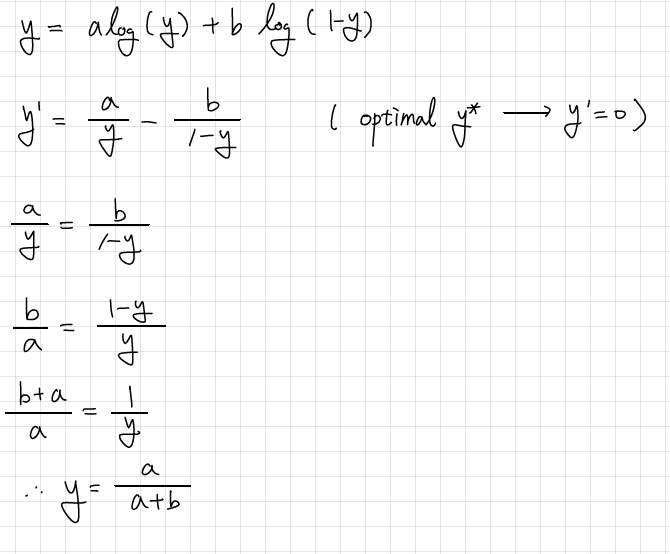 y = a log(y) + b log(1-y)
y' = a/y - b/(1-y) ( optimal y* ⟶ y'=0 )
a/y = b/(1-y)
b/a = (1-y)/y
(b+a)/a = 1/y
∴ y = a/(a+b)